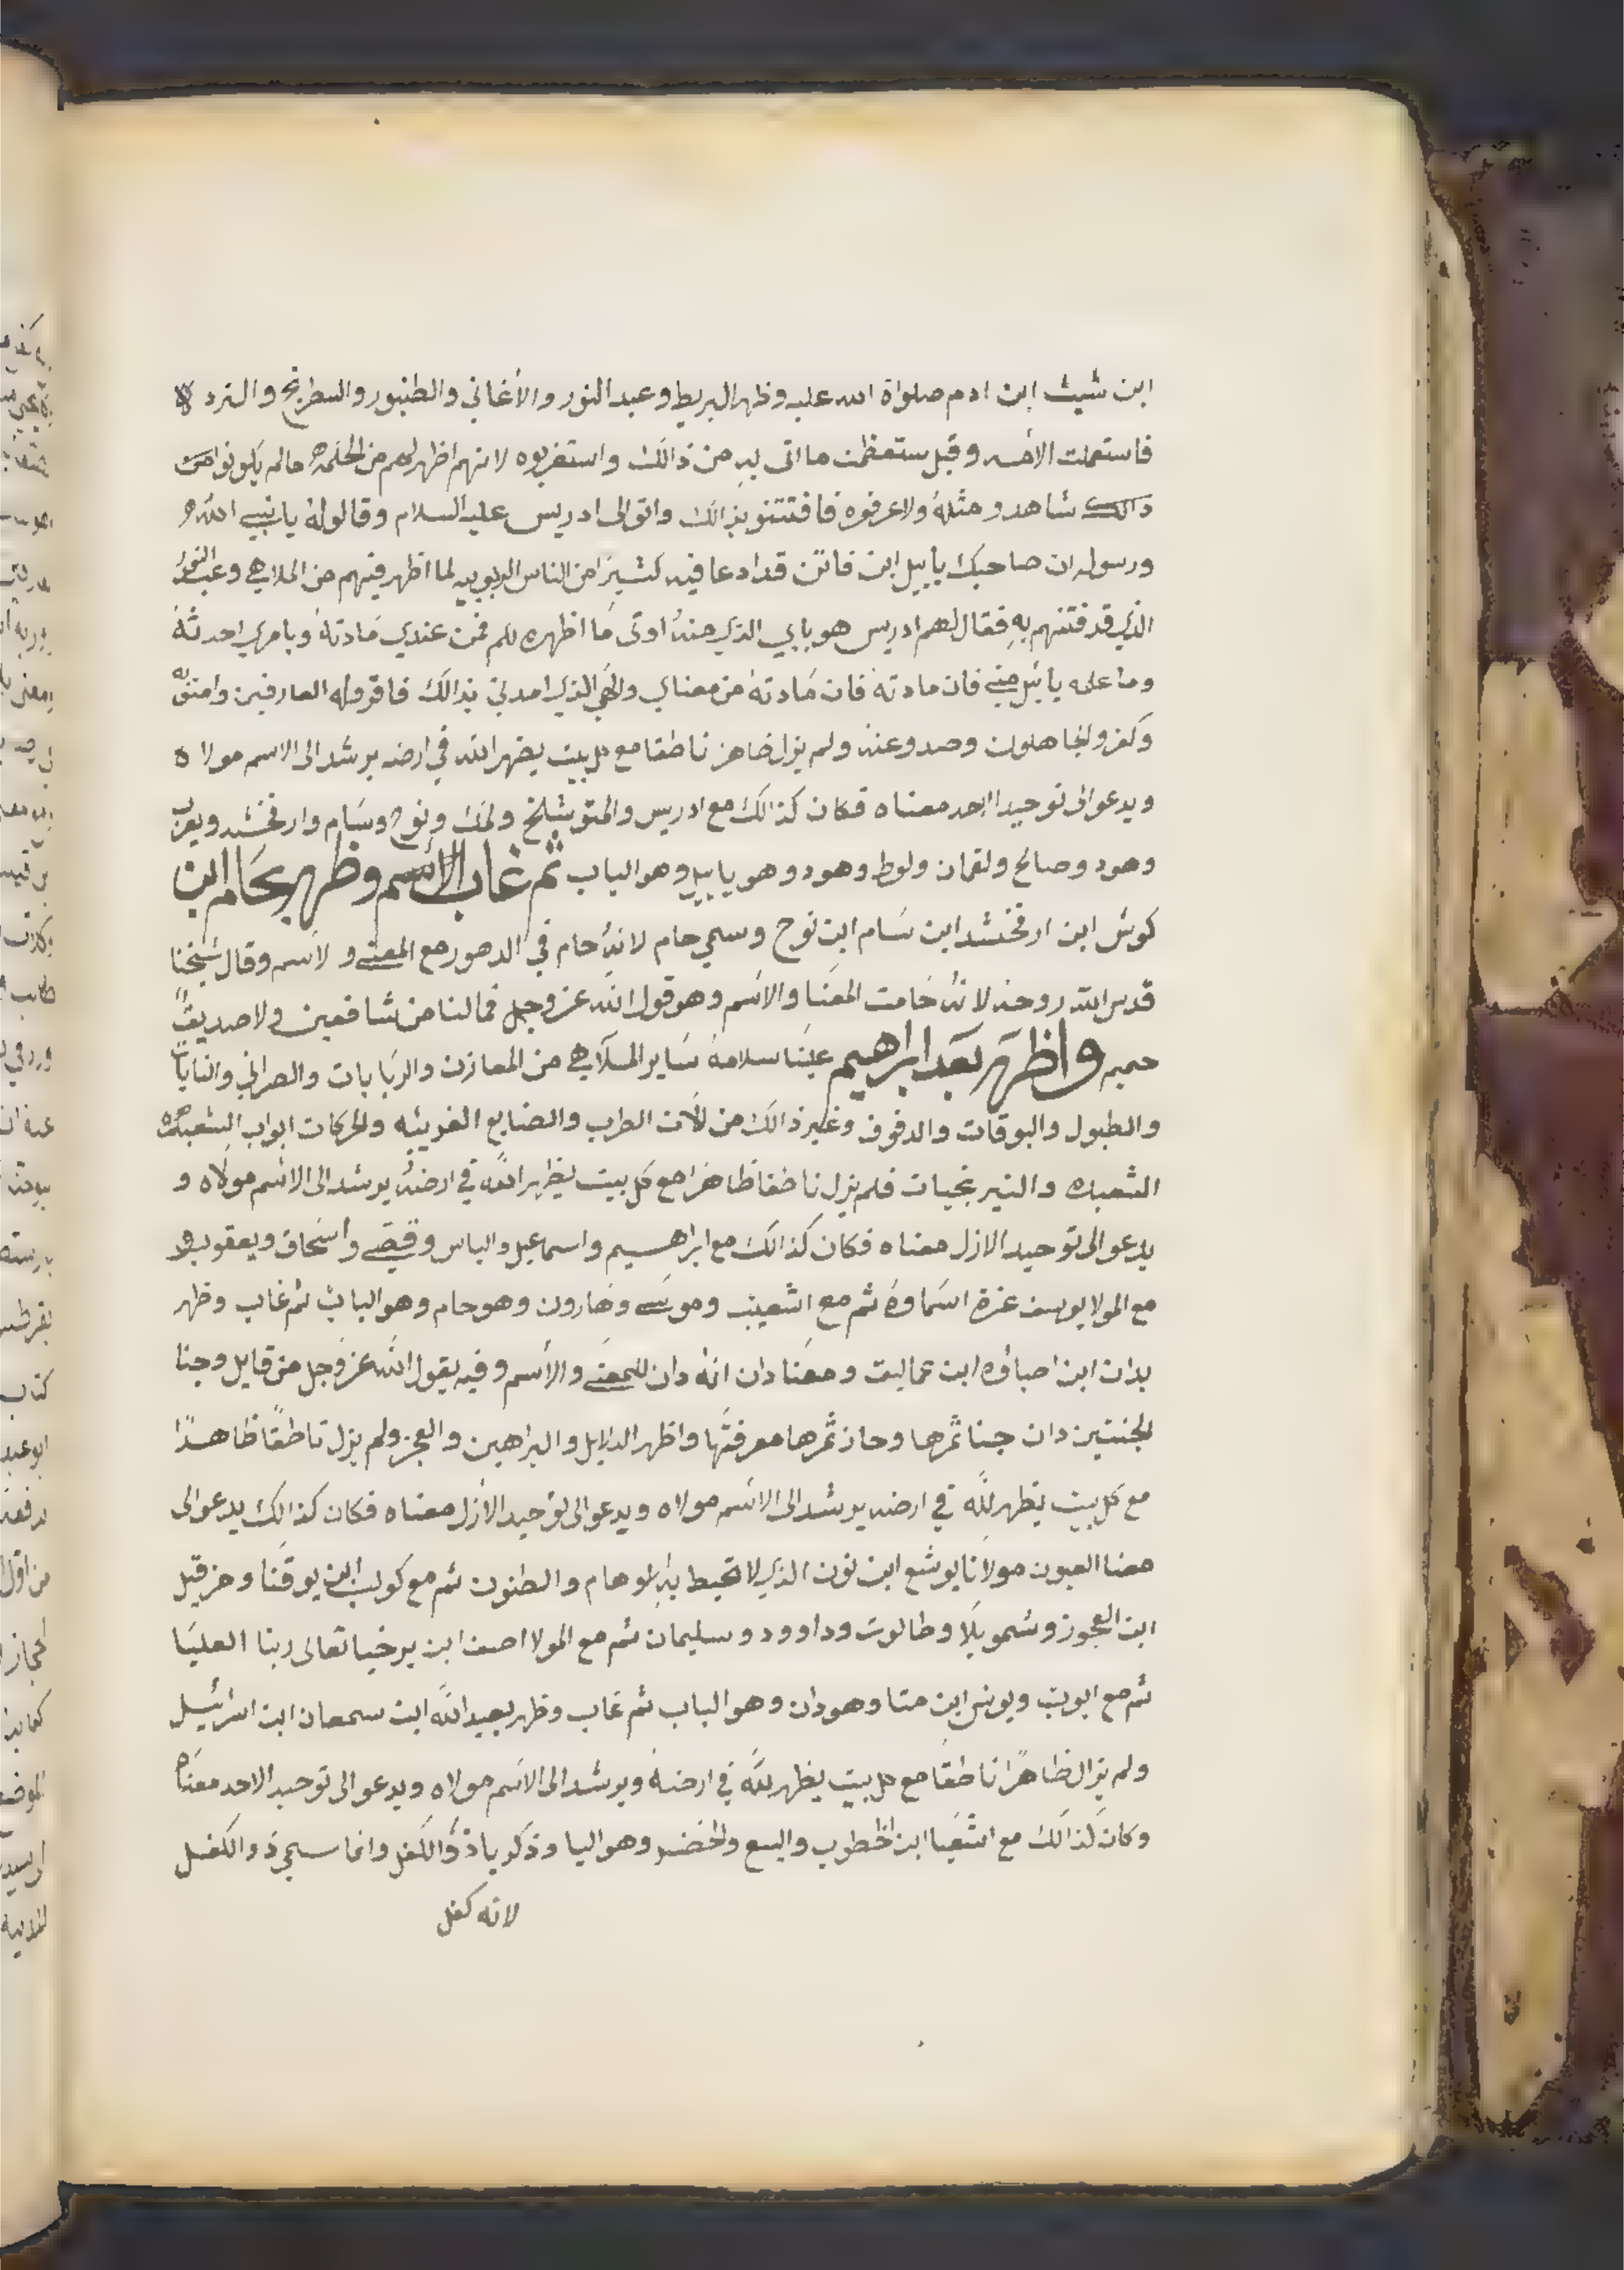 ابن شيث ابن ادم صلواة الله عليه وظهر البربط وعبد النور والأغاني والطنبور والسطرنج والنرد
فاستعملت الأمه وقبل ستعظمت ما اتى به من ذالك واستغربوه لانهم اظهر لهم من الحكمه مالم يكونوا من
ذالك شاهدو مثله ولاعرفوه فافتتنو بذالك واتو الى ادريس عليه السلام وقالو له يا نبي الله
ورسوله ان صاحبك يا بيل ابن فاتن قد ادعا فيه كثيرًا من الناس الربوبيه لما اظهر فيهم من الملاهي وعبد النور
الذي قد فتنهم به فقال لهم ادريس هو بابي الذي منه اوتى ما اظهره لكم فمن عندي مادته وبامري احدثه
وما علمه يا بيل مني فان مادته فان مادته من معناي والاهي الذي امدني بذالك فاقرو له العارفين وامنو به
وكفرو الجاهلون وصدو عنه ولم يزل ظاهر ناطقا مع كل بيت يظهر الله في ارضه يرشد الى الاسم مولاه
ويدعو الى توحيد احد معناه فكان كذالك مع ادريس والمتوشلخ ولمك ونوح وسام وارفخشد ويعرب
وهود وصالح ولقمان ولوط وهود وهو يا بيل وهو الباب ثم غاب الاسم وظهر بحام ابن
كوش ابن ارفخشد ابن سام ابن نوح وسمي حام لانه حام في الدهور مع المعنى و لاسم وقال شيخنا
قدس الله روحه لانه حامت المعنا والأسم وهو قول الله عز وجل فمالنا من شافعين ولا صديق
حميم واظهر بعد ابراهيم علينا سلامه ساير الملاهي من المعازن والربابات والصراني والنايات
والطبول والبوقات والدفوف وغير ذالك من للات الطرب والصنايع الغريبه والحركات ابواب الشعبده
الشعبده والنيرنجيات فلم يزل ناطقا ظاهرا مع كل بيت يظهر الله في ارضه يرشد الى الاسم مولاه و
يدعو الى توحيد الازل معناه فكان كذالك مع ابراهيم واسماعيل والياس وقصي واسحاق ويعقوب و
مع المولا يوسف عزة اسماوه ثم مع اشعيب وموسى وهارون وهو حام وهو الباب ثم غاب وظهر
بدان ابن اصباؤه ابن عماليت ومعنا دان انه دان للمعنى والأسم وفيه يقول الله عز وجل من قايل وجنا
الجنتين دان جنا ثمرها وحاز ثمرها معرفتها واظهر الدلايل والبراهين والعجز ولم يزل ناطقًا ظاهرًا
مع كل بيت يظهر لله في ارضه يرشد الى الاسم مولاه ويدعو الى توحيد الأزل معناه فكان كذالك يدعو الى
معنا العيون مولانا يوشع ابن نون الذي لا تحيط به الاوهام والظنون ثم مع كولب ابن يوقنا وحزقيل
ابن العجوز وشمويلا وطالوت وداوود وسليمان ثم مع المولا اصف ابن برخيا تعالى ربنا العليا
ثم مع ايوب ويونس ابن متا وهو دان وهو الباب ثم غاب وظهر بعبد الله ابن سمعان ابن اسرائيل
ولم يزال ظاهرًا ناطقًا مع كل بيت يظهر لله في ارضه ويرشد الى الاسم مولاه ويدعو الى توحيد الاحد معناه
وكان كذالك مع اشعيا ابن اخطوب واليسع والخضر وهو اليا وذكريا ذو الكفل وانما سمي ذو الكفل
لانه كفل